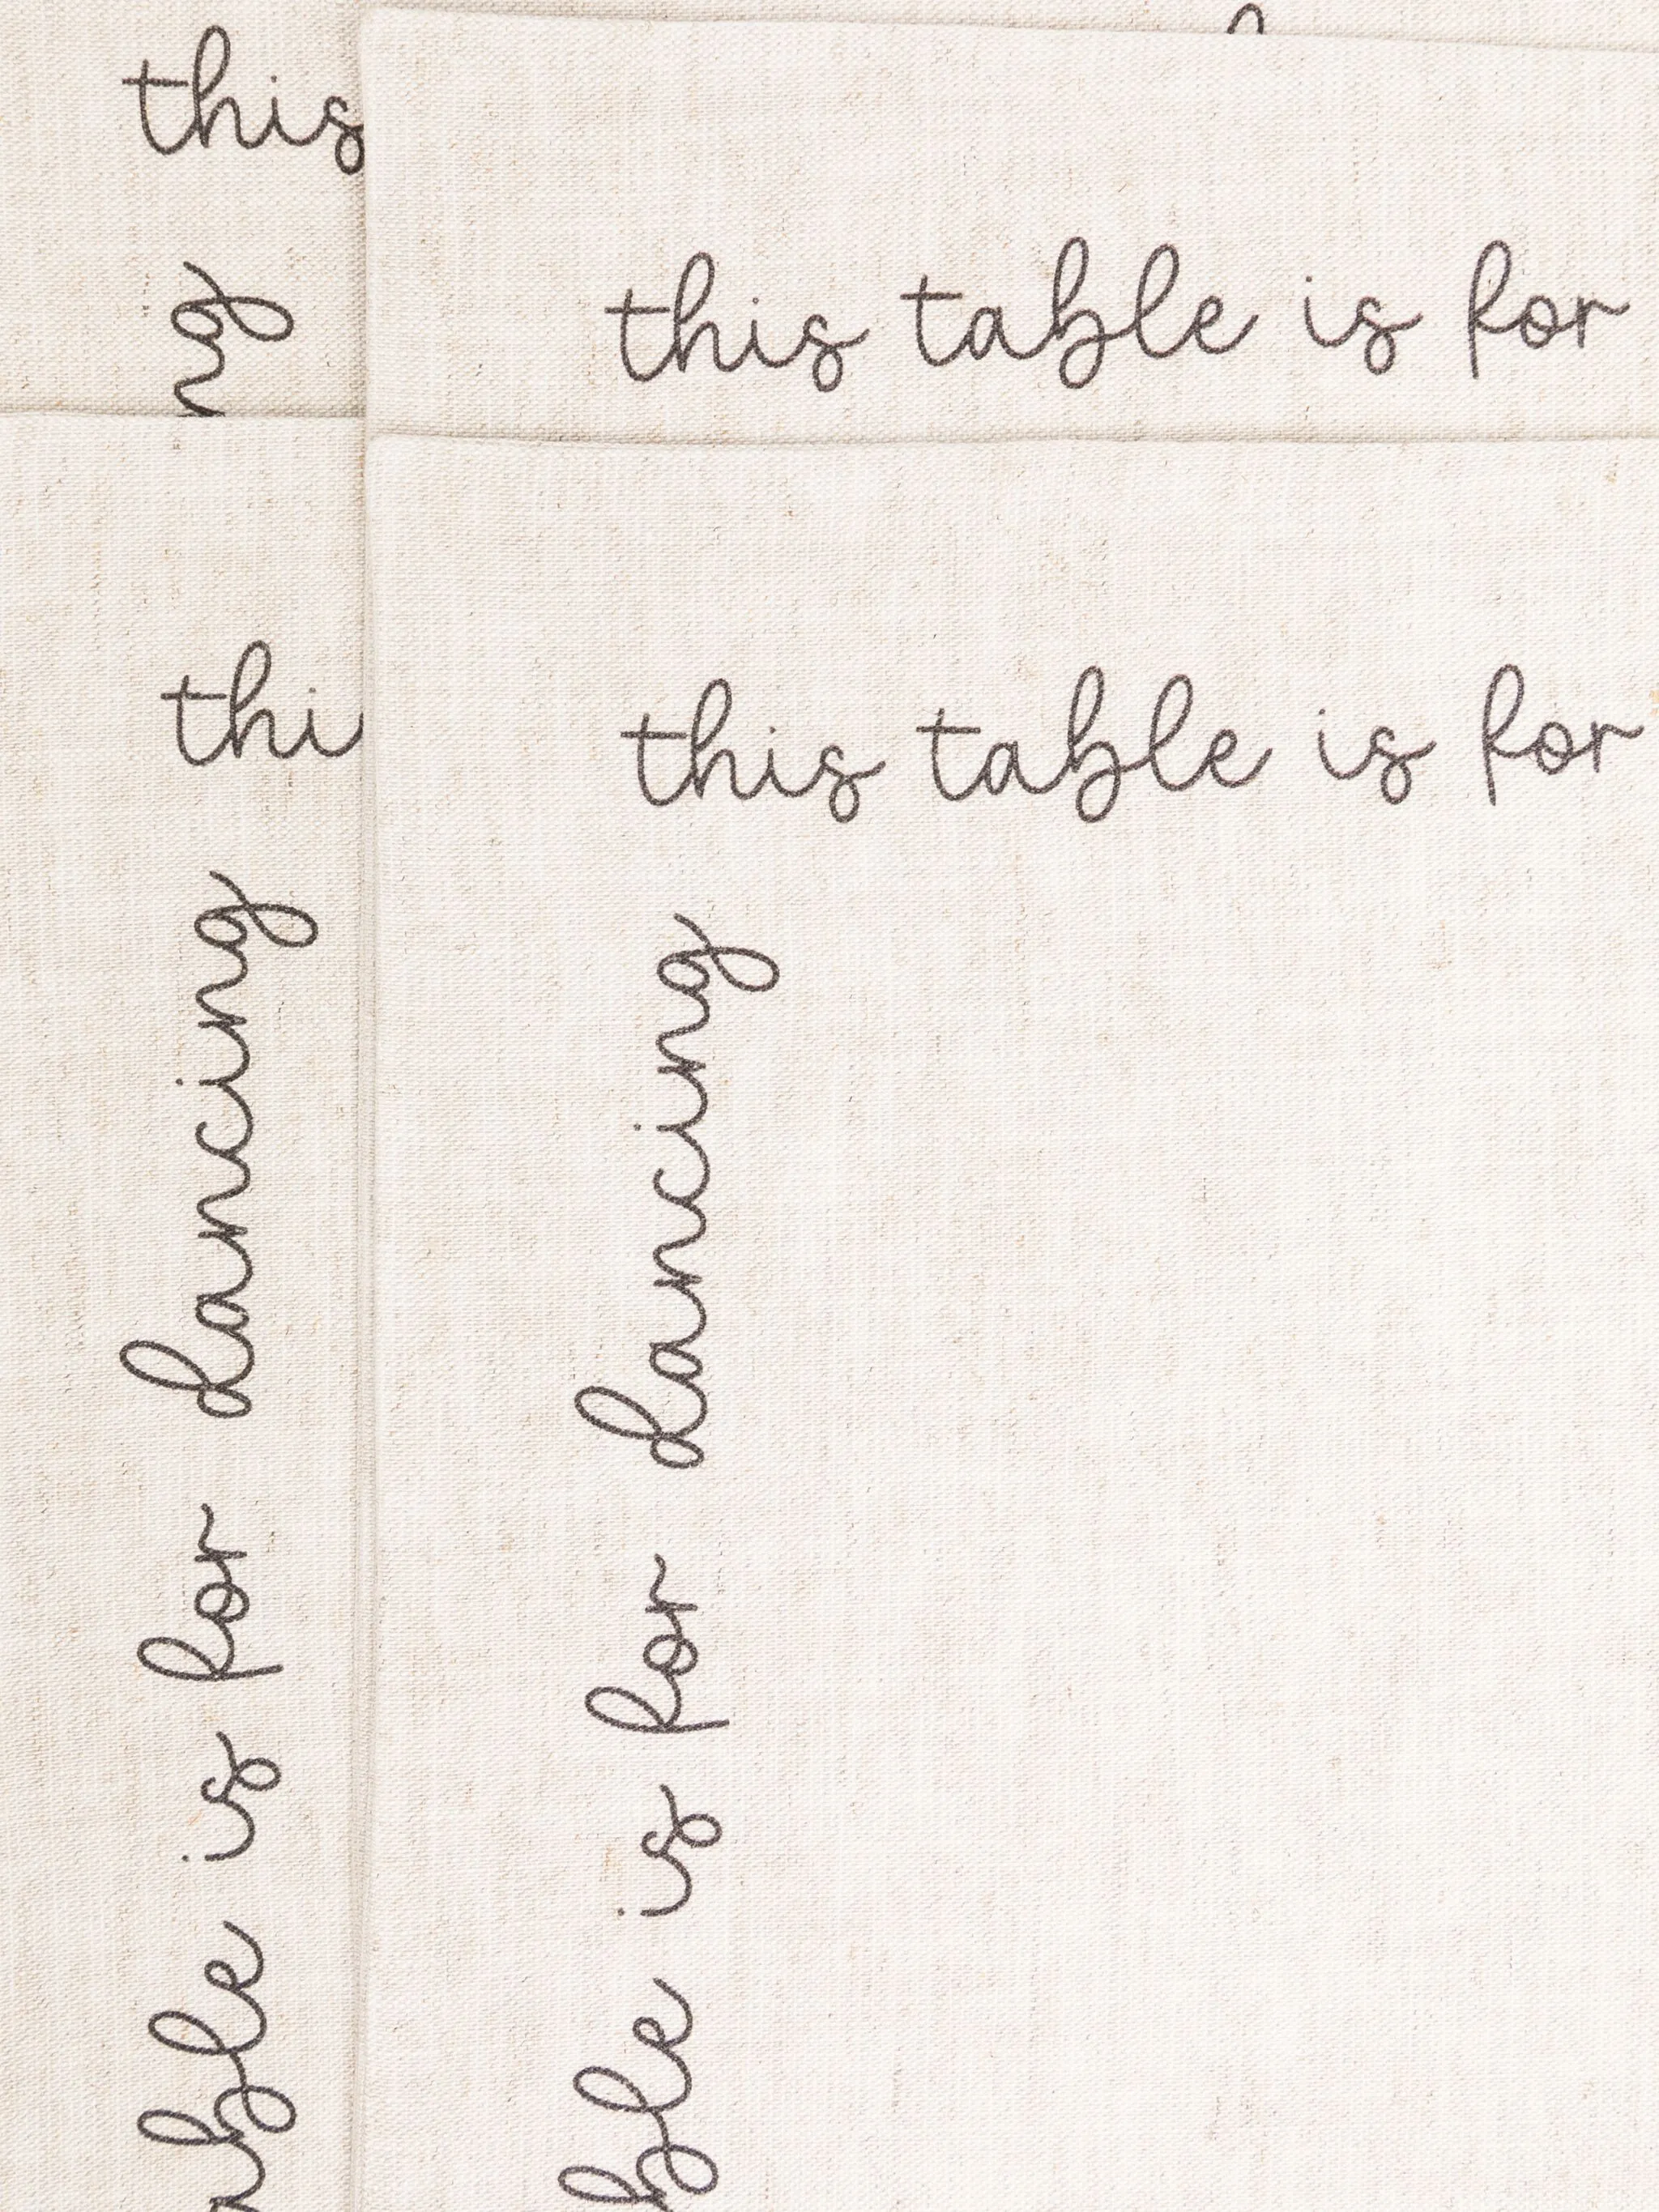 this
this table is for
thi
this table is for
dancing
for dancing
is for dancing